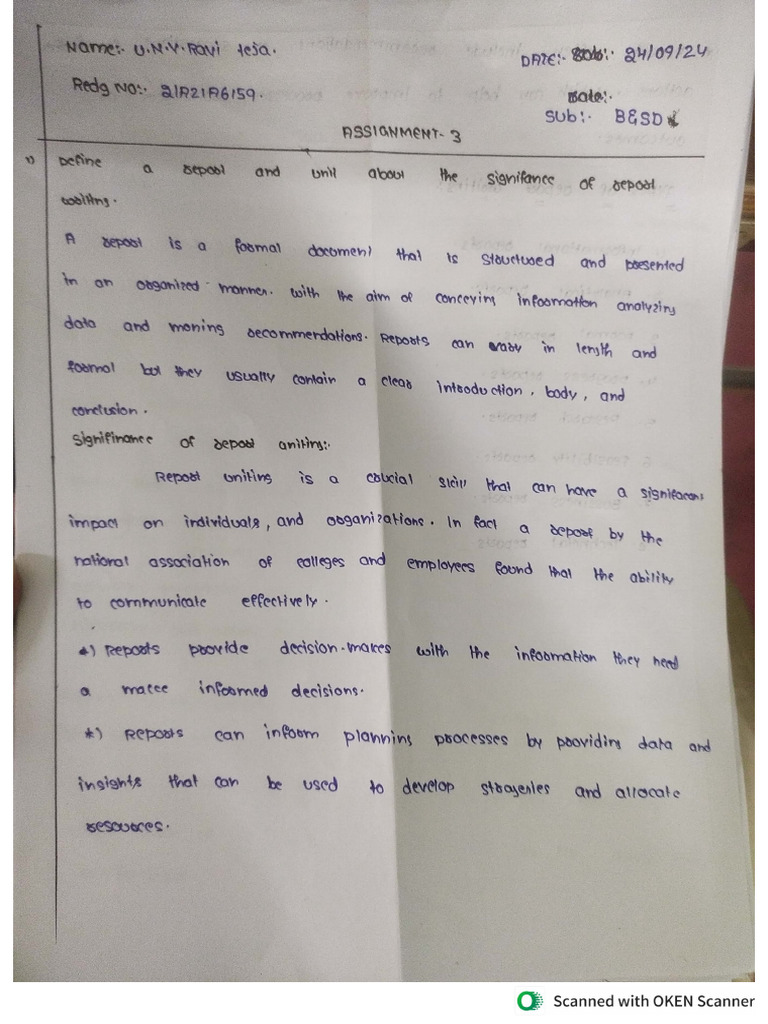 Name:- U.N.V.Ravi teja.
DATE:- 24/09/24
Redg NO:- 21A21A6159.
Date:-
Sub:- B&SD
ASSIGNMENT-3
1) Define a report and writ about the signifance of report
writing.
A report is a formal document that is structured and presented
in an organized manner. with the aim of conceying information analyzing
data and moning recommendations. Reports can vary in length and
format but they usually contain a clear introduction, body, and
conclusion.
Signifinance of report writing:-
Report writing is a crucial skill that can have a significans
impact on individuals, and organizations. In fact a report by the
national association of colleges and employees found that the ability
to communicate effectively.
*) Reports provide decision-makes with the information they need
a makee informed decisions.
*) Reports can inform planning processes by providing data and
insights that can be used to develop stragenies and allocate
resources.
Scanned with OKEN Scanner